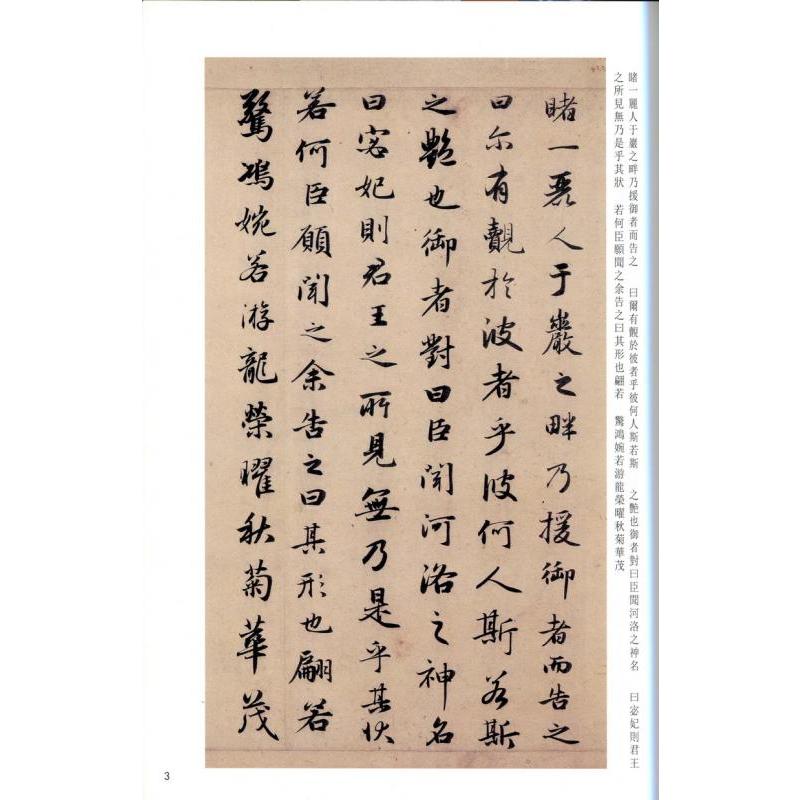 睹一麗人于巖之畔乃援御者而告之
曰尔有覿於彼者乎彼何人斯若斯
之艷也御者對曰臣聞河洛之神名
曰宓妃則君王之所見無乃是乎其状
若何臣願聞之余告之曰其形也翩若
驚鴻婉若游龍榮曜秋菊華茂
睹一麗人于巖之畔乃援御者而告之 曰爾有覿於彼者乎彼何人斯若斯 之艷也御者對曰臣聞河洛之神名 曰宓妃則君王
之所見無乃是乎其狀 若何臣願聞之余告之曰其形也翩若 驚鴻婉若游龍榮曜秋菊華茂
3